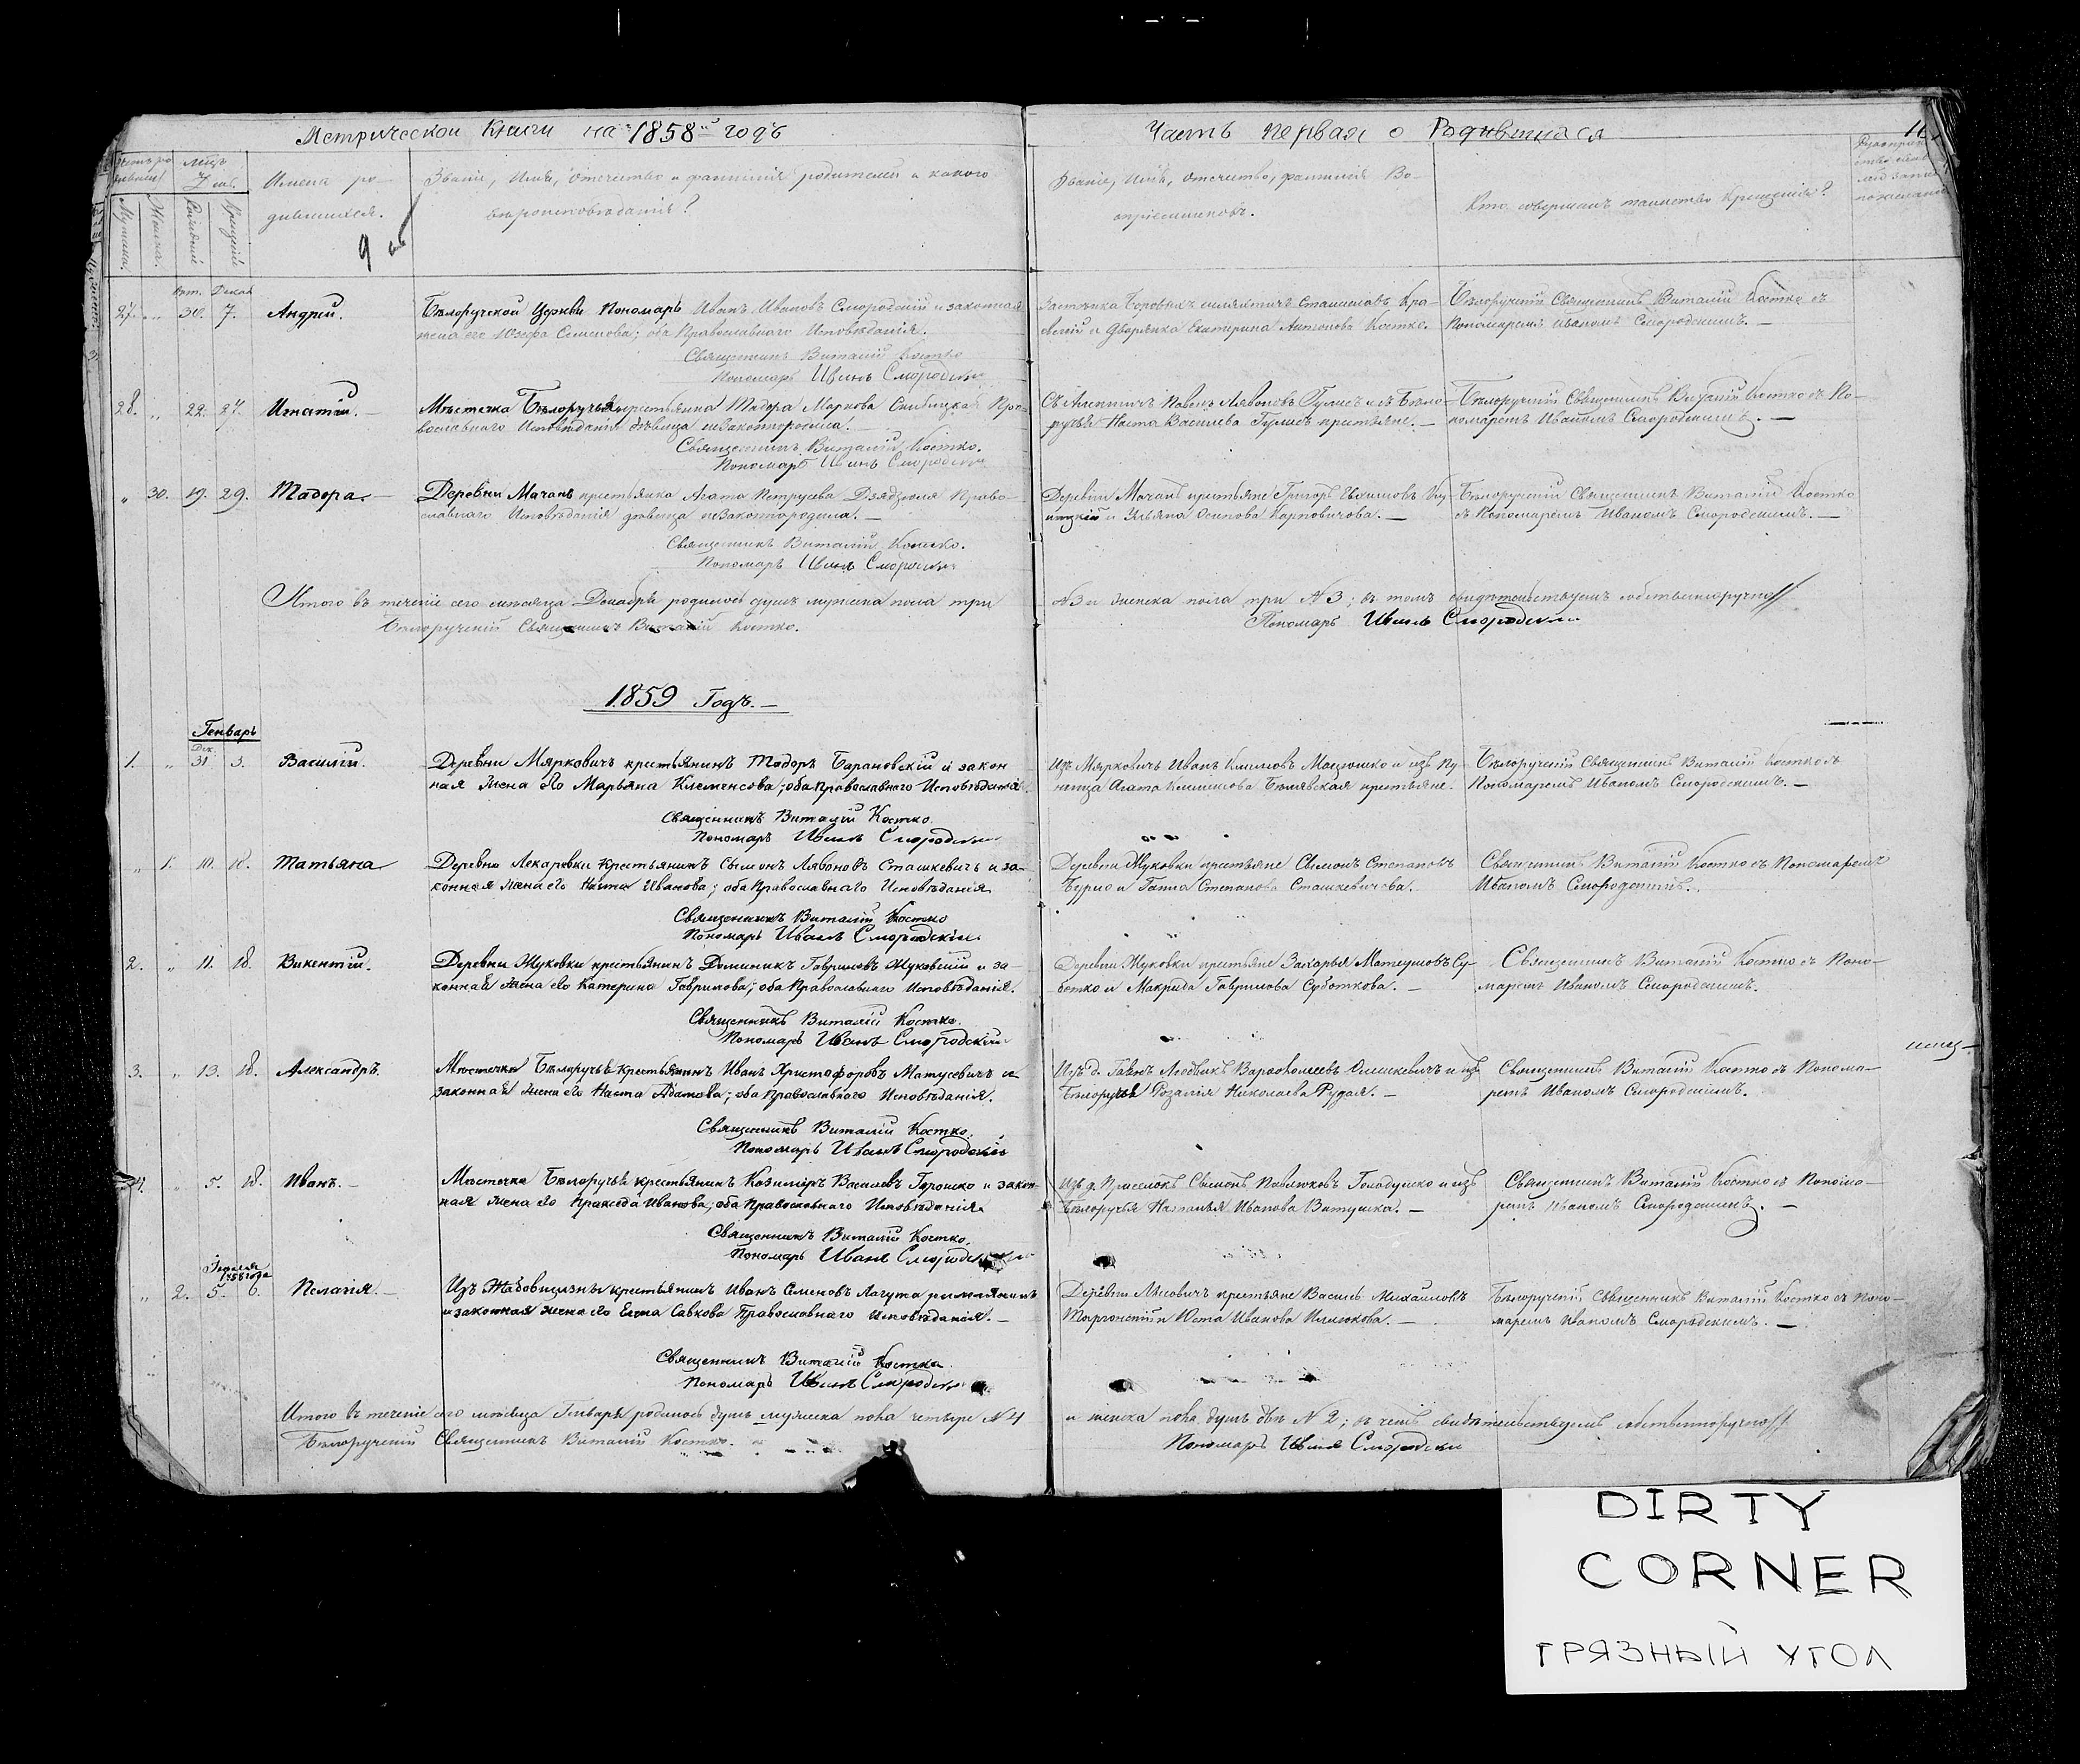 Метрической Книги на 1858й годъ
Часть первая о Родившихся
Имена ро-
дившихся.
Званіе, Имя, отечество и фамилія родителей и какого
вѣроисповѣданія?
Званіе, Имя, отечество, фамилія Во-
спріемниковъ.
Кто совершалъ таинство Крещенія?
27. „ 30. 7. Андрей.
Бѣлоручской Церкви Пономарь Иванъ Ивановъ Смородскій и законная
жена его Юзефа Семенова; оба Православнаго Исповѣданія.
Священникъ Виталій Костко
Пономарь Иванъ Смородскій
и дворянка Екатерина Антонова Костко.
Бѣлоручскій Священникъ Виталій Костко съ
Пономаремъ Иваномъ Смородскимъ. —
28. „ 22. 27. Игнатій. —
Мѣстечка Бѣлоручья крестьянка Тадора Маркова Скибицкая Пра-
вославнаго Исповѣданія дѣвица незаконнородила. —
Священникъ Виталій Костко.
Пономарь Иванъ Смородскій
ручья Наста Василева Гулисъ крестьяне. —
Бѣлоручскій Священникъ Виталій Костко съ По-
номаремъ Иваномъ Смородскимъ. —
„ 30. 19. 29. Тадора. —
Деревни Мачанъ крестьянка Агата Петрусева Право-
славнаго Исповѣданія дѣвица незаконнородила. —
Священникъ Виталій Костко.
Пономарь Иванъ Смородскій
Деревни Мачанъ крестьяне Григоръ
и Ульяна Осипова Карповичова. —
Бѣлоручскій Священникъ Виталій Костко
съ Пономаремъ Иваномъ Смородскимъ. —
Итого въ теченіе сего мѣсяца Декабря родилось душъ мужеска пола три
№3 и женска пола три №3; въ томъ свидѣтельствуемъ собственноручно//
Бѣлоручскій Священникъ Виталій Костко.
Пономарь Иванъ Смородскій
1859 Годъ. —
Генварь
Дек.
1. „ 31. 3. Василій.
Деревни Мярковичъ крестьянинъ Тадоръ Барановскій и закон
ная жена его Марьяна Клеменсова; оба Православнаго Исповѣданія.
Священникъ Виталій Костко.
Пономарь Иванъ Смородскій
Изъ Мярковичъ Иванъ Климовъ Мацюшко и изъ
Агата Климова Бѣлявская крестьяне.
Бѣлоручскій Священникъ Виталій Костко съ
Пономаремъ Иваномъ Смородскимъ. —
„ 1. 10. 18. Татьяна
Деревни Лекаревки крестьянинъ Сымонъ Лявоновъ Сташкевичъ и за-
конная жена его Наста Иванова; оба Православнаго Исповѣданія
Священникъ Виталій Костко
Пономарь Иванъ Смородскій.
Деревни Жуковки крестьяне Сымонъ Степановъ
и Ганна Степанова Сташкевичова.
Священникъ Виталій Костко съ Пономаремъ
Иваномъ Смородскимъ.
2. „ 11. 18. Викентій.
Деревни Жуковки крестьянинъ Доминикъ Гавриловъ Жуковскій и за-
конная жена его Катерина Гаврилова; оба Православнаго Исповѣданія.
Священникъ Виталій Костко.
Пономарь Иванъ Смородскій
Деревни Жуковки крестьяне Захарья Матеушовъ Су-
ботко и Макрида Гаврилова Суботкова. —
Священникъ Виталій Костко съ Поно-
маремъ Иваномъ Смородскимъ.
3. „ 13. 18. Александръ.
Мѣстечки Бѣлоручья Крестьянинъ Иванъ Христофоровъ Матусевичъ и
законная жена его Наста Адамова; оба Православнаго Исповѣданія.
Священникъ Виталій Костко.
Пономарь Иванъ Смородскій
Варѳоломеевъ и изъ
Бѣлоручья Розалія Николаева Рудая. —
Священникъ Виталій Костко съ Понома-
ремъ Иваномъ Смородскимъ.
4. „ 5. 18. Иванъ. —
Мѣстечка Бѣлоручья крестьянинъ Казиміръ Василевъ Горошко и закон-
ная жена его Пракседа Иванова; оба Православнаго Исповѣданія.
Священникъ Виталій Костко.
Пономарь Иванъ Смородскій
Сымонъ Павлюковъ Голадушко и изъ
Бѣлоручья Наталья Иванова Витушка. —
Священникъ Виталій Костко съ Понома-
ремъ Иваномъ Смородскимъ. —
1858 года
„ 2. 5. 6. Пелагія. —
Изъ крестьянинъ Иванъ Семеновъ Лагута римлянинъ
и законная жена его Елена Савкова Православнаго Исповѣданія. —
Священникъ Виталій Костко.
Пономарь Иванъ Смородскій
Деревни крестьяне Василь Михайловъ
и Юста Иванова —
Бѣлоручскій Священникъ Виталій Костко съ Поно-
маремъ Иваномъ Смородскимъ. —
Итого въ теченіе сего мѣсяца Генваря родилось душъ мужеска пола четыре №4
и женска пола душъ двѣ №2; въ чемъ свидѣтельствуемъ собственноручно//
Бѣлоручскій Священникъ Виталій Костко.
Пономарь Иванъ Смородскій
DIRTY
CORNER
ГРЯЗНЫЙ УГОЛ